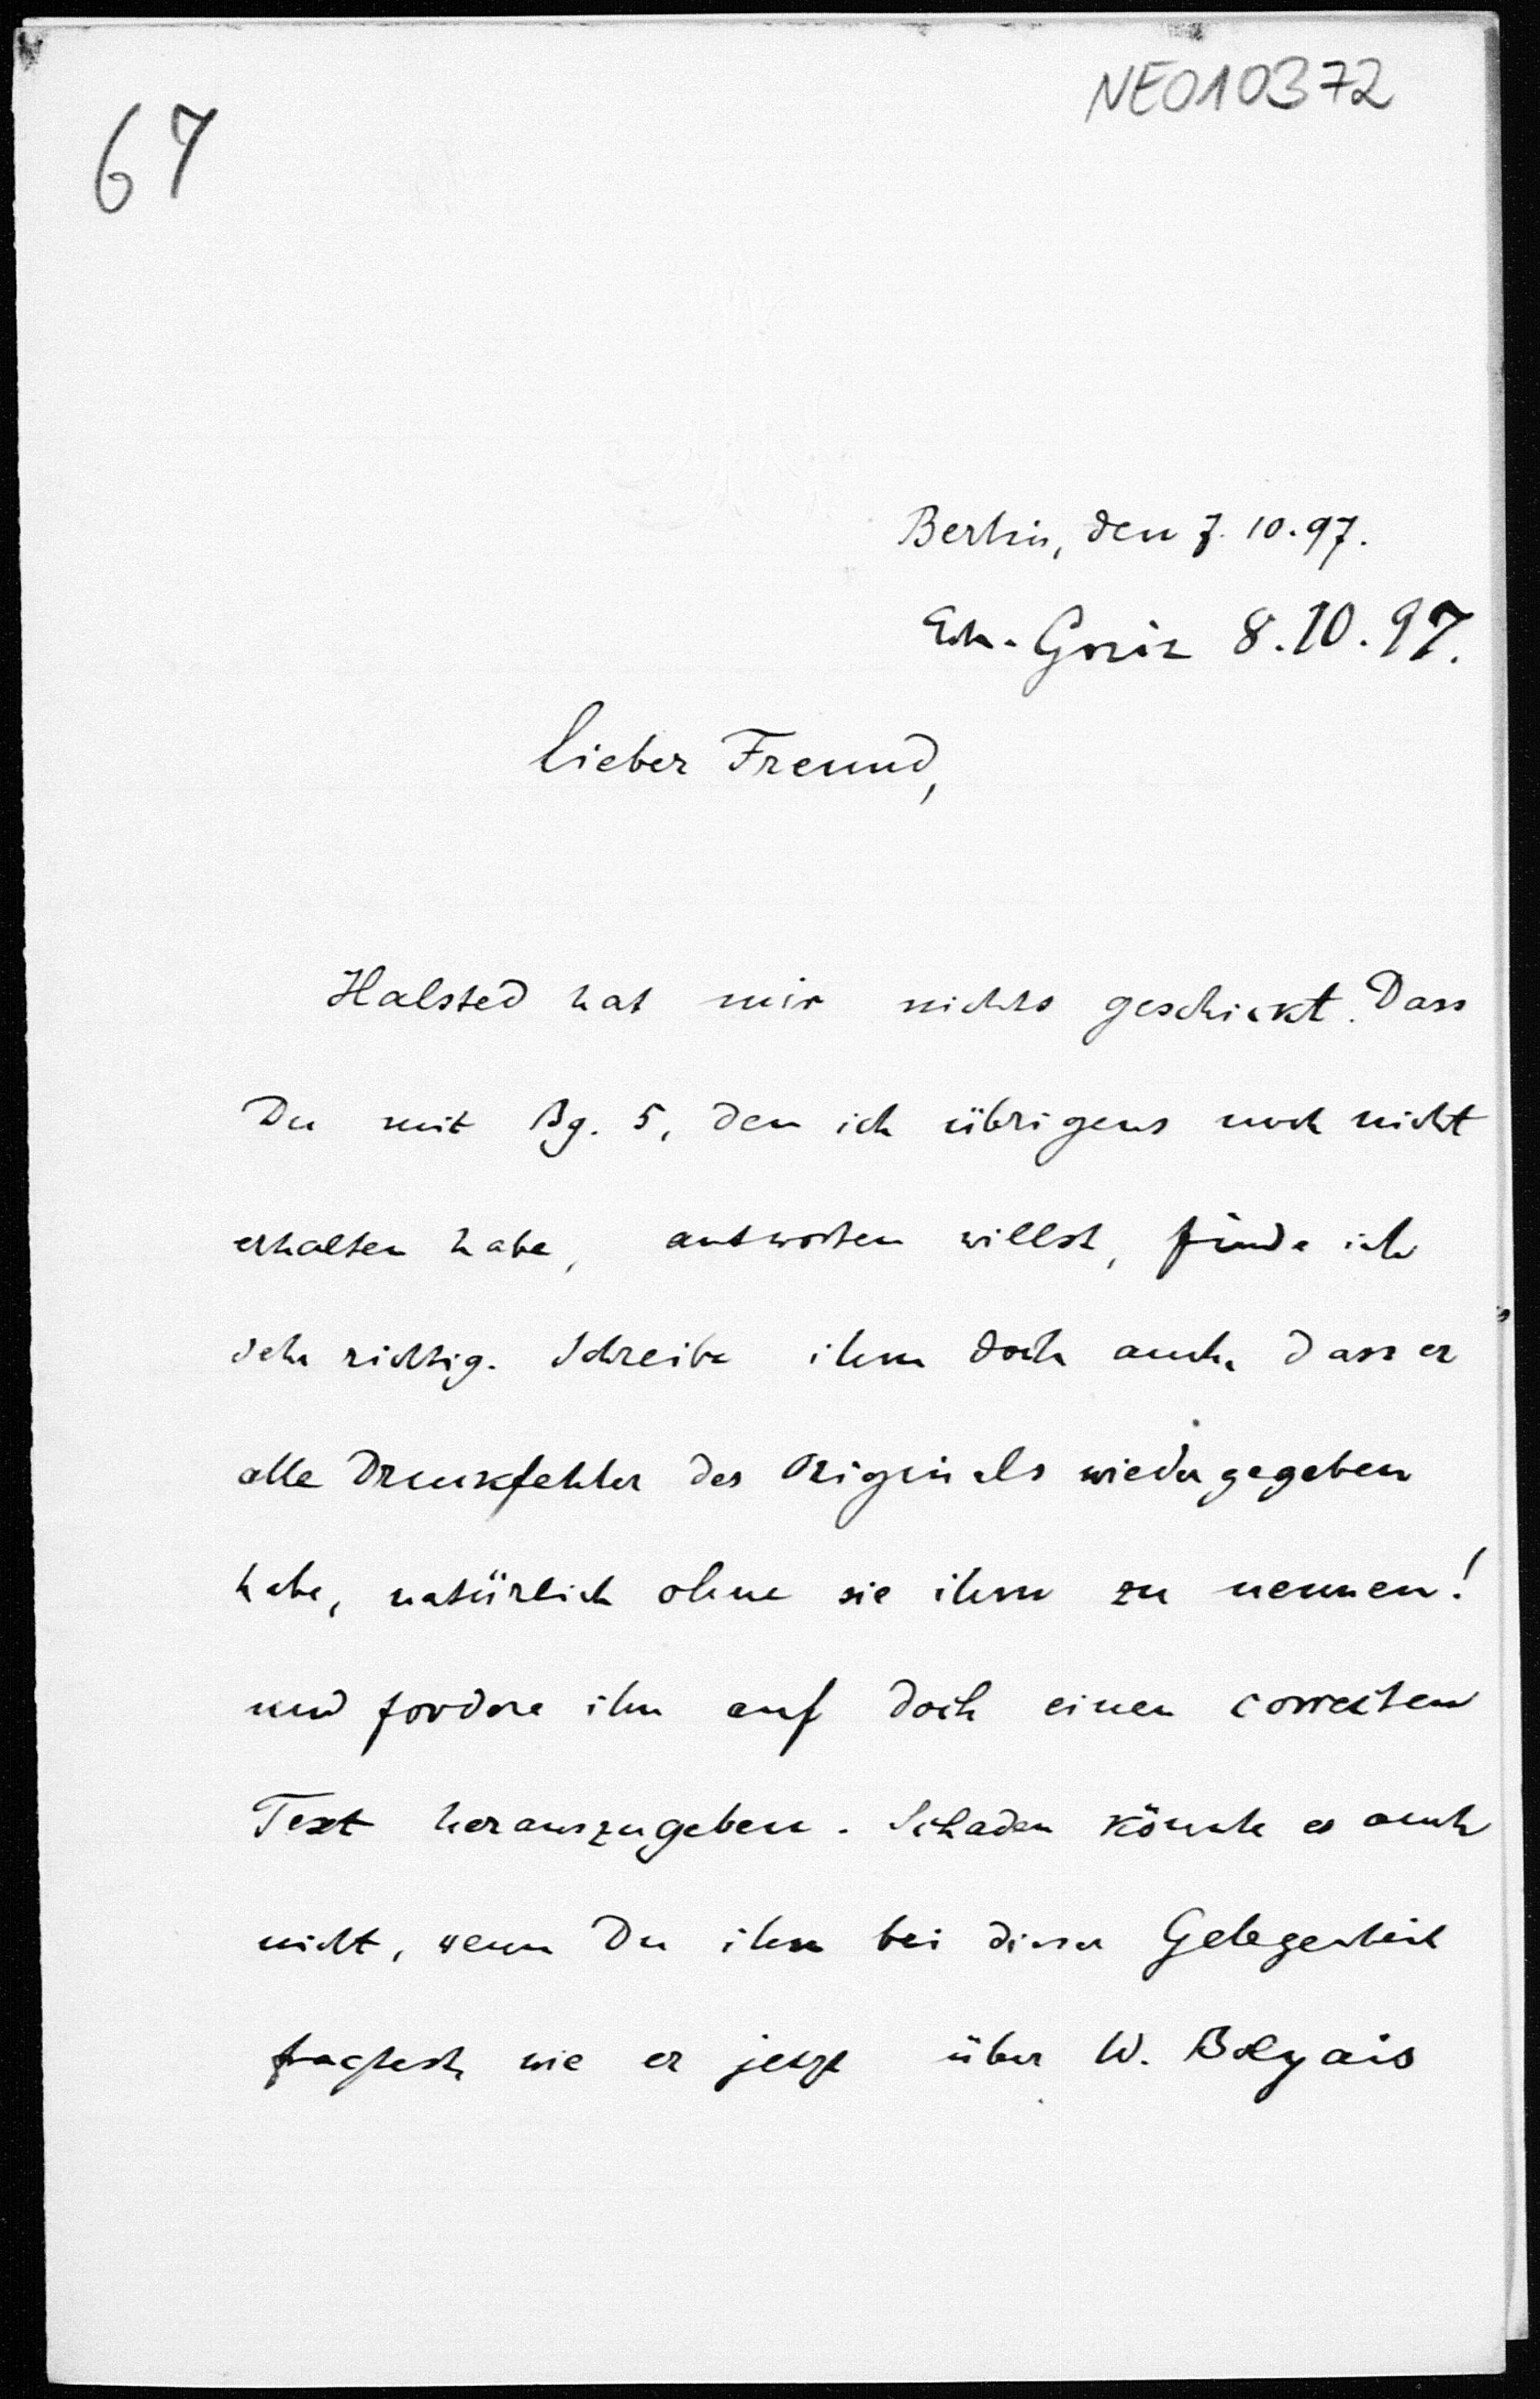 NE010372
67
Berlin, den 7. 10. 97.
Erh. Greiz 8.10.97.
Lieber Freund,
Halsted hat mir nichts geschickt. Dass
Du mit Bg. 5, den ich übrigens noch nicht
erhalten habe, antworten willst, finde ich
sehr richtig. Schreibe ihm doch auch, dass er
alle Druckfehler des Originals wiedergegeben
habe, natürlich ohne sie ihm zu nennen!
und fordere ihn auf doch einen correcten
Text herauszugeben. Schaden könnte es auch
nicht, wenn Du ihn bei dieser Gelegenheit
fragtest, wie er jetzt über W. Bolyais